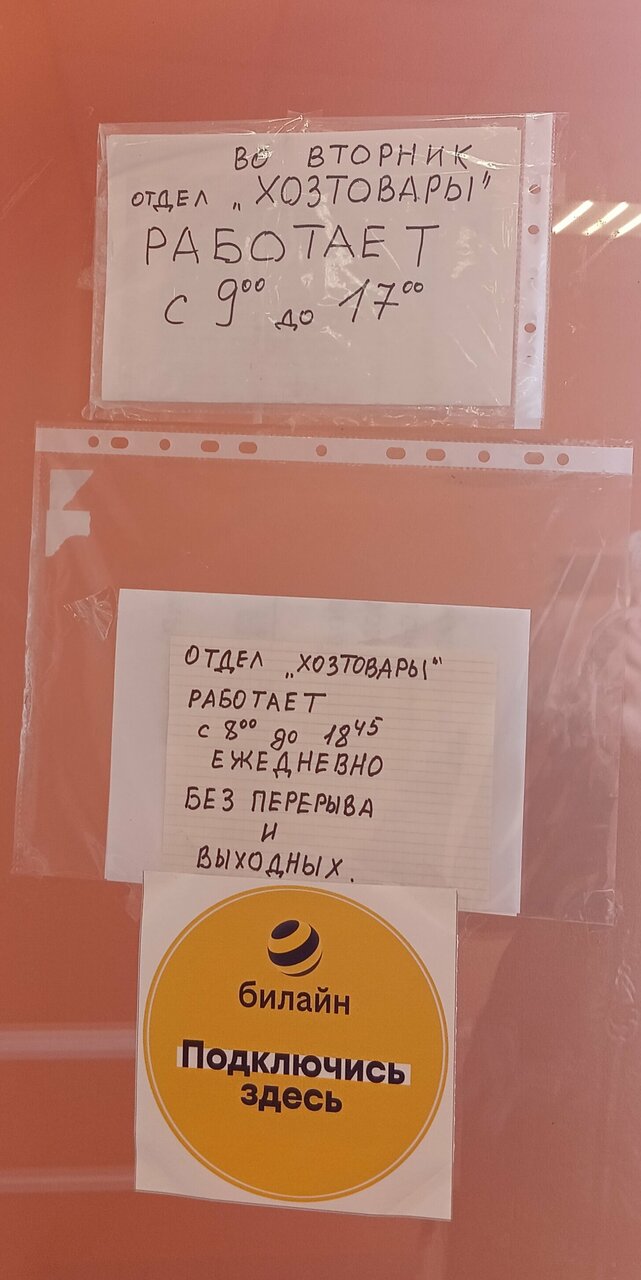 ВО ВТОРНИК
ОТДЕЛ „ХОЗТОВАРЫ"
РАБОТАЕТ
С 9⁰⁰ ДО 17⁰⁰
ОТДЕЛ „ХОЗТОВАРЫ"
РАБОТАЕТ
С 8⁰⁰ до 18⁴⁵
ЕЖЕДНЕВНО
БЕЗ ПЕРЕРЫВА
И
ВЫХОДНЫХ.
билайн
Подключись
здесь